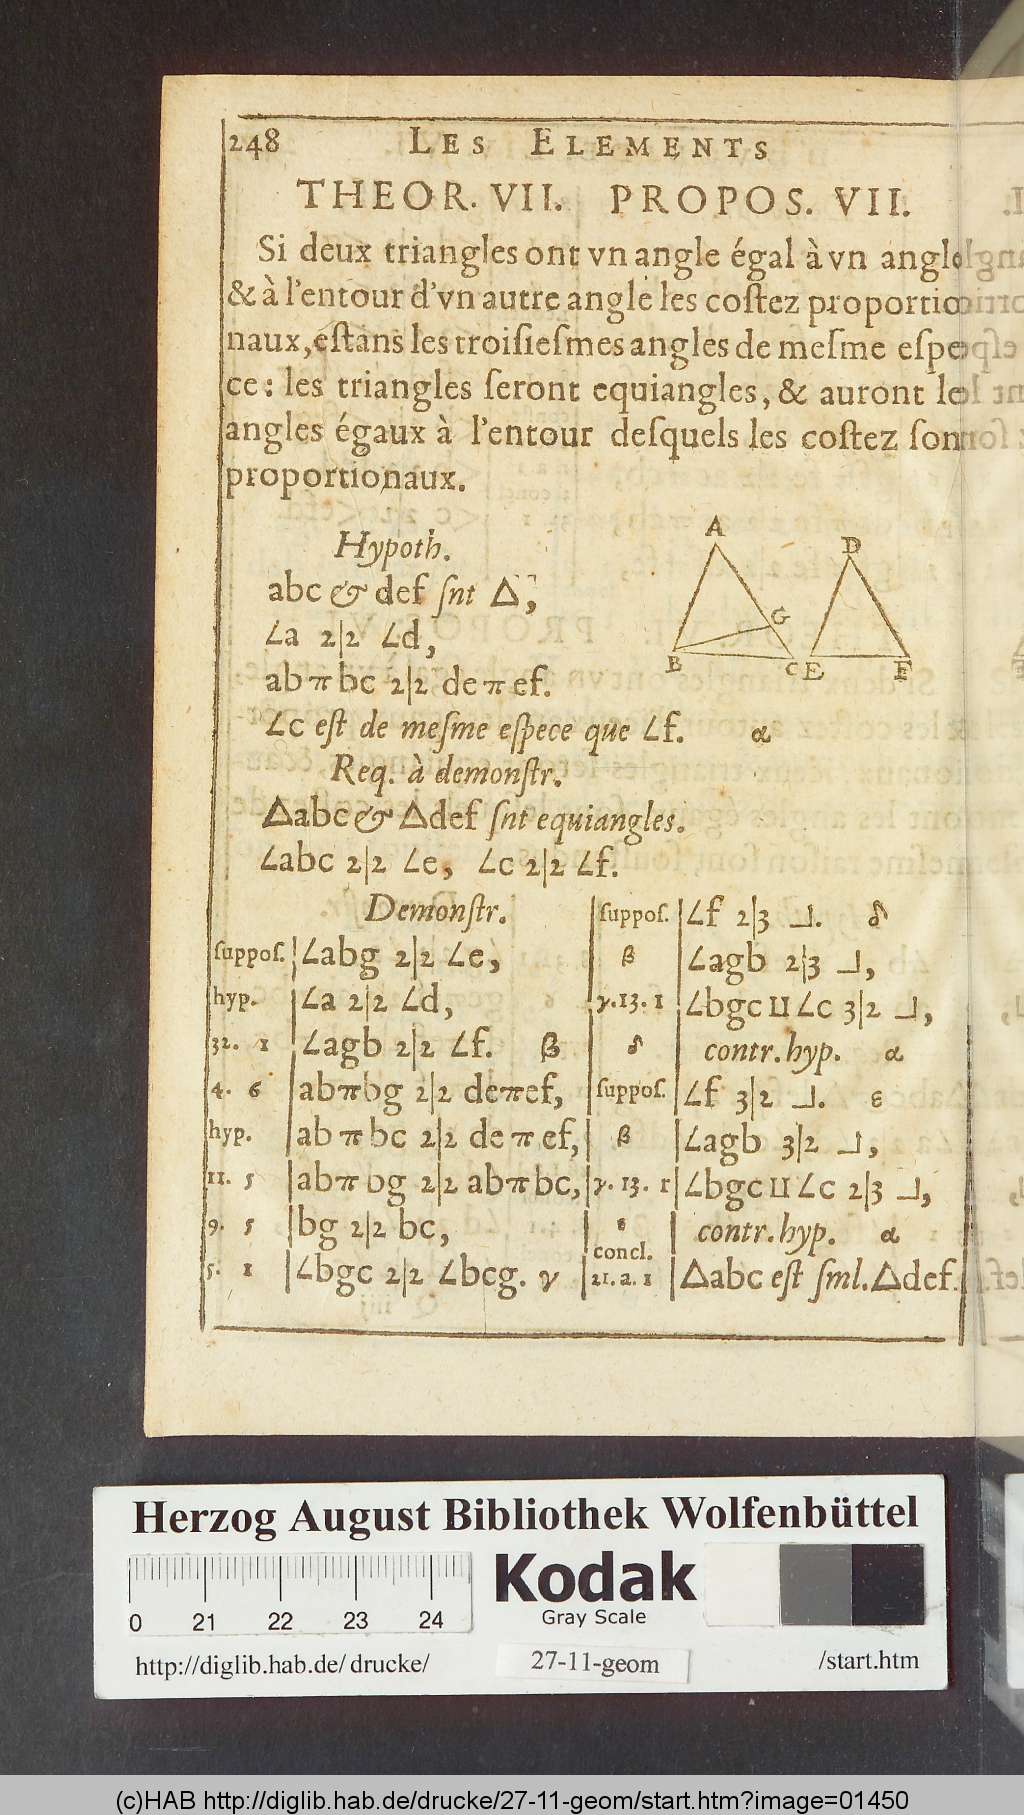 248 LES ELEMENTS
THEOR. VII. PROPOS. VII.
Si deux triangles ont vn angle égal à vn angle
& à l'entour d'vn autre angle les coſtez proportio
naux, eſtans les troiſieſmes angles de meſme eſpe
ce: les triangles ſeront equiangles, & auront le
angles égaux à l'entour deſquels les coſtez ſon
proportionaux.
Hypoth.
abc & def ſnt Δ,
∠a 2|2 ∠d,
ab π bc 2|2 de π ef.
∠c eſt de meſme eſpece que ∠f. α
Req. à demonſtr.
Δabc & Δdef ſnt equiangles.
∠abc 2|2 ∠e, ∠c 2|2 ∠f.
A
D
G
B
C
E
F
Demonſtr.
ſuppoſ. | ∠abg 2|2 ∠e,
hyp. | ∠a 2|2 ∠d,
32. 1 | ∠agb 2|2 ∠f. β
4. 6 | abπbg 2|2 deπef,
hyp. | ab π bc 2|2 de π ef,
11. 5 | abπ bg 2|2 abπbc,
9. 5 | bg 2|2 bc,
5. 1 | ∠bgc 2|2 ∠bcg. γ
ſuppoſ. | ∠f 2|3 ⅃. δ
β | ∠agb 2|3 ⅃,
γ.13. 1 | ∠bgc ⊔ ∠c 3|2 ⅃,
δ | contr. hyp. α
ſuppoſ. | ∠f 3|2 ⅃. ε
β | ∠agb 3|2 ⅃,
γ. 13. 1 | ∠bgc ⊔ ∠c 2|3 ⅃,
ε | contr. hyp. α
concl.
21. a. 1 | Δabc eſt ſml. Δdef.
Herzog August Bibliothek Wolfenbüttel
0 21 22 23 24
Kodak
Gray Scale
http://diglib.hab.de/drucke/ 27-11-geom /start.htm
(c)HAB http://diglib.hab.de/drucke/27-11-geom/start.htm?image=01450